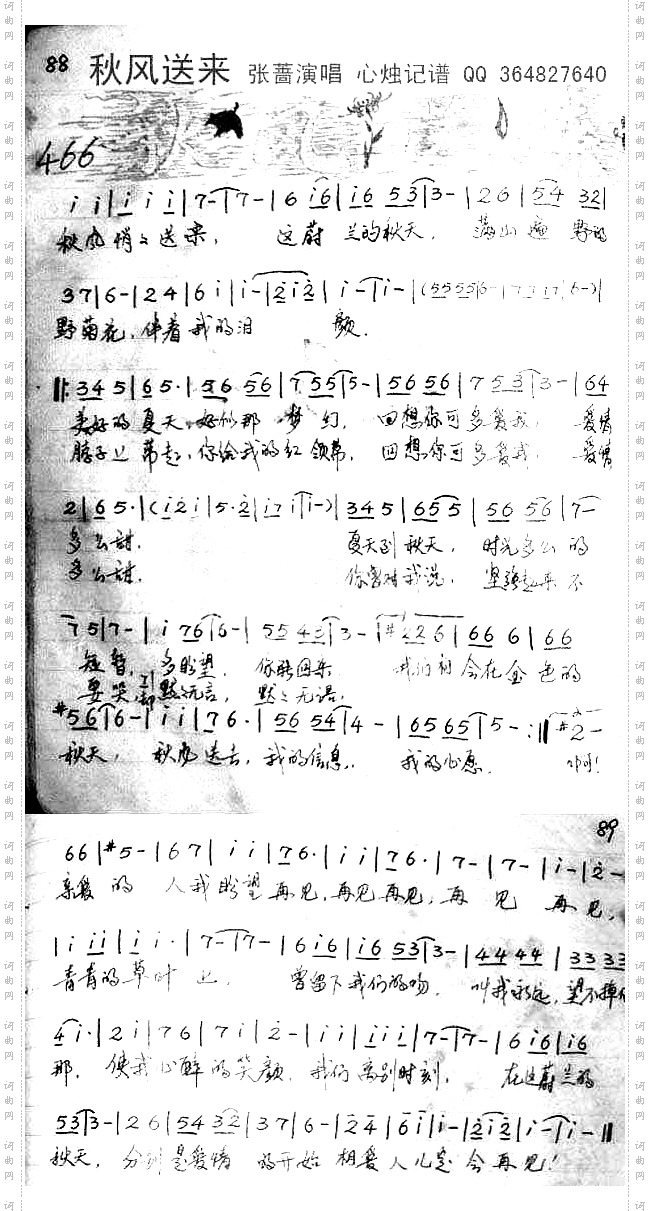 88 秋风送来 张蔷演唱 心烛记谱 QQ 364827640
466
i i | i i i | 7 - | 7 - | 6 i6 | i6 53 | 3 - | 26 | 54 32 |
秋风悄悄送来, 这蔚兰的秋天, 满山遍野的
37 | 6 - | 24 | 6 i | i - | 2i2 | i - | i - | (
野菊花,伴着我的泪 颜.
||: 34 5 | 65· | 56 56 | 7 55 | 5 - | 56 56 | 7 53 | 3 - | 64
美好的夏天,好似那梦幻, 回想你可多爱我, 爱情
脖子上带起,你给我的红领带, 回想你可多爱我, 爱情
2 | 65· | (i2i | 5·2 | i7i | i -) | 34 5 | 65 5 | 56 56 | 7 -
多么甜. 夏天到秋天, 时光多么的
多么甜. 你曾对我说, 坚强起来不
7 5 | 7 - | i 76 | 6 - | 55 43 | 3 - | #2 26 | 66 6 | 66
短暂, 多盼望, 你能回来 我们相会在金色的
要哭, 默默无言, 默默无语,
#56 | 6 - | i i | 76· | 56 54 | 4 - | 65 65 | 5 - :|| #2 -
秋天, 秋风送去, 我的信息, 我的心愿. 啊!
89
66 | #5 - | 67 | i i | 76· | i i | 76· | 7 - | 7 - | i - | 2 -
亲爱的 人我盼望再见,再见再见,再 见 再见,
| i ii | i i· | 7 - | 7 - | 6 i6 | i6 53 | 3 - | 44 44 | 33 33
青青的草叶上, 曾留下我们的吻, 叫我永远,望不掉你
4 i· | 2 i | 76 | 7 i | 2 - | i i | i i i | 7 - | 7 - | 6 i6 | i6
那, 使我心醉的笑颜, 我们离别时刻, 在这蔚兰的
53 | 3 - | 26 | 54 32 | 37 | 6 - | 24 | 6 i | i - | 2i2 | i - | i - ||
秋天, 分别是爱情的开始 相爱人儿定会再见!
词曲网